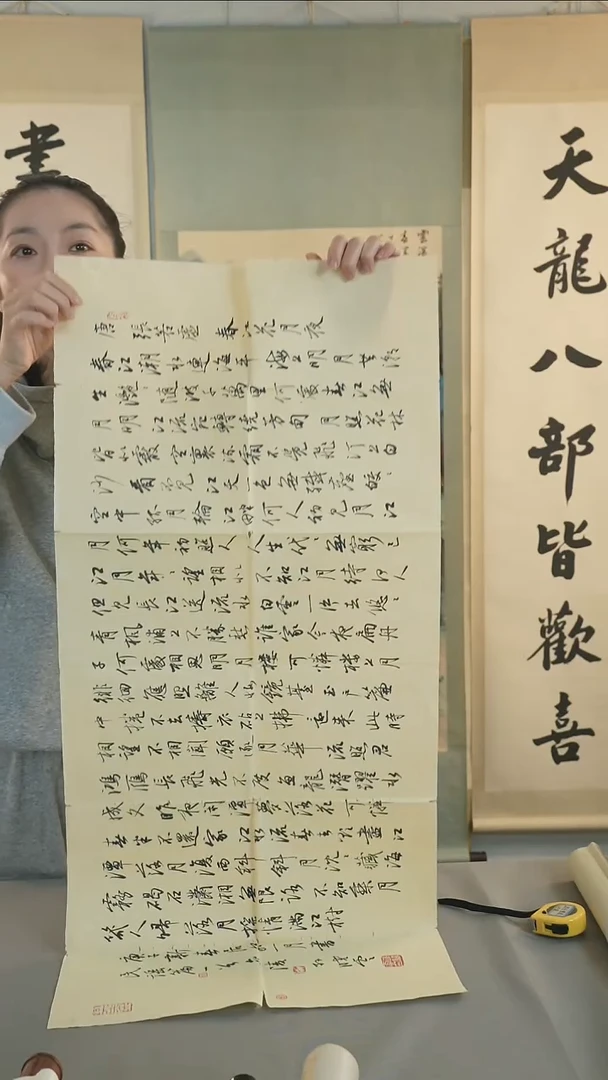 書
天龍八部皆歡喜
唐 張若虛 春江花月夜
春江潮水連海平 海上明月共潮
生 灩々隨波千萬里 何處春江無
月明 江流宛轉繞芳甸 月照花林
皆似霰 空裏流霜不覺飛 汀上白
沙看不見 江天一色無纖塵 皎々
空中孤月輪 江畔何人初見月 江
月何年初照人 人生代々無窮已
江月年々望相似 不知江月待何人
但見長江送流水 白雲一片去悠々
青楓浦上不勝愁 誰家今夜扁舟
子 何處相思明月樓 可憐樓上月
徘徊 應照離人妝鏡臺 玉戶簾
中捲不去 擣衣砧上拂還來 此時
相望不相聞 願逐月華流照君
鴻雁長飛光不度 魚龍潛躍水
成文 昨夜閑潭夢落花 可憐
春半不還家 江水流春去欲盡 江
潭落月復西斜 斜月沉々藏海
霧 碣石瀟湘無限路 不知乘月
幾人歸 落月搖情滿江樹